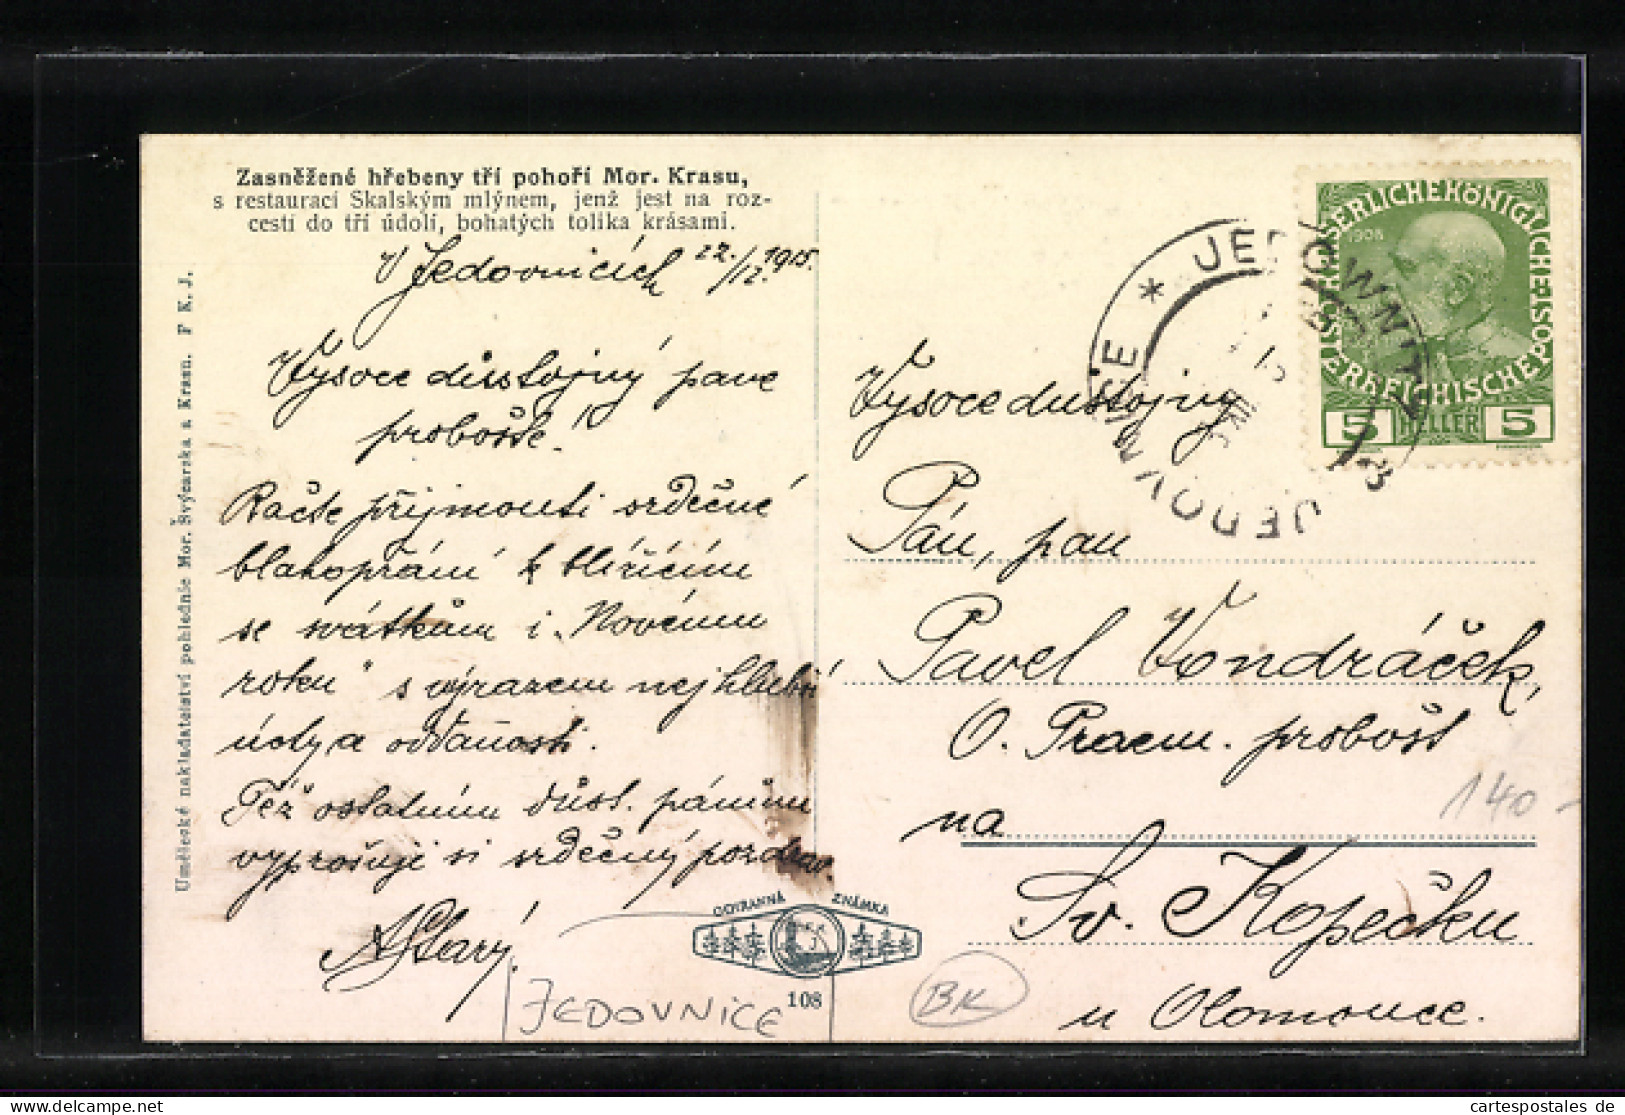 Zasněžené hřebeny tří pohoří Mor. Krasu,
s restaurací Skalským mlýnem, jenž jest na roz-
cestí do tří údolí, bohatých tolika krásami.
V Jedovnicích 22./12. 1915.
Vysoce důstojný pane
probošte!
Račte přijmouti srdečné
blahopřání k blížícím
se svátkům i „Novému
roku" s výrazem nejhlubší
úcty a oddanosti.
Též ostatním důst. pánům
vyprošuji si srdečný pozdrav.
AStarý
Umělecké nakladatelství pohlednic Mor. Švýcarska a Krasu. F K. J.
OCHRANNÁ ZNÁMKA
108
JEDOVNICE
BK
KAISERLICHE KÖNIGLICHE ÖSTERREICHISCHE POST
1908
5 HELLER 5
* JEDOWNITZ
JEDOVNICE
Vysocedůstojný
Pán, pan
Pavel Vondráček,
O. Praem. probošt
na
Sv. Kopečku
u Olomouce.
140-
cartespostales de